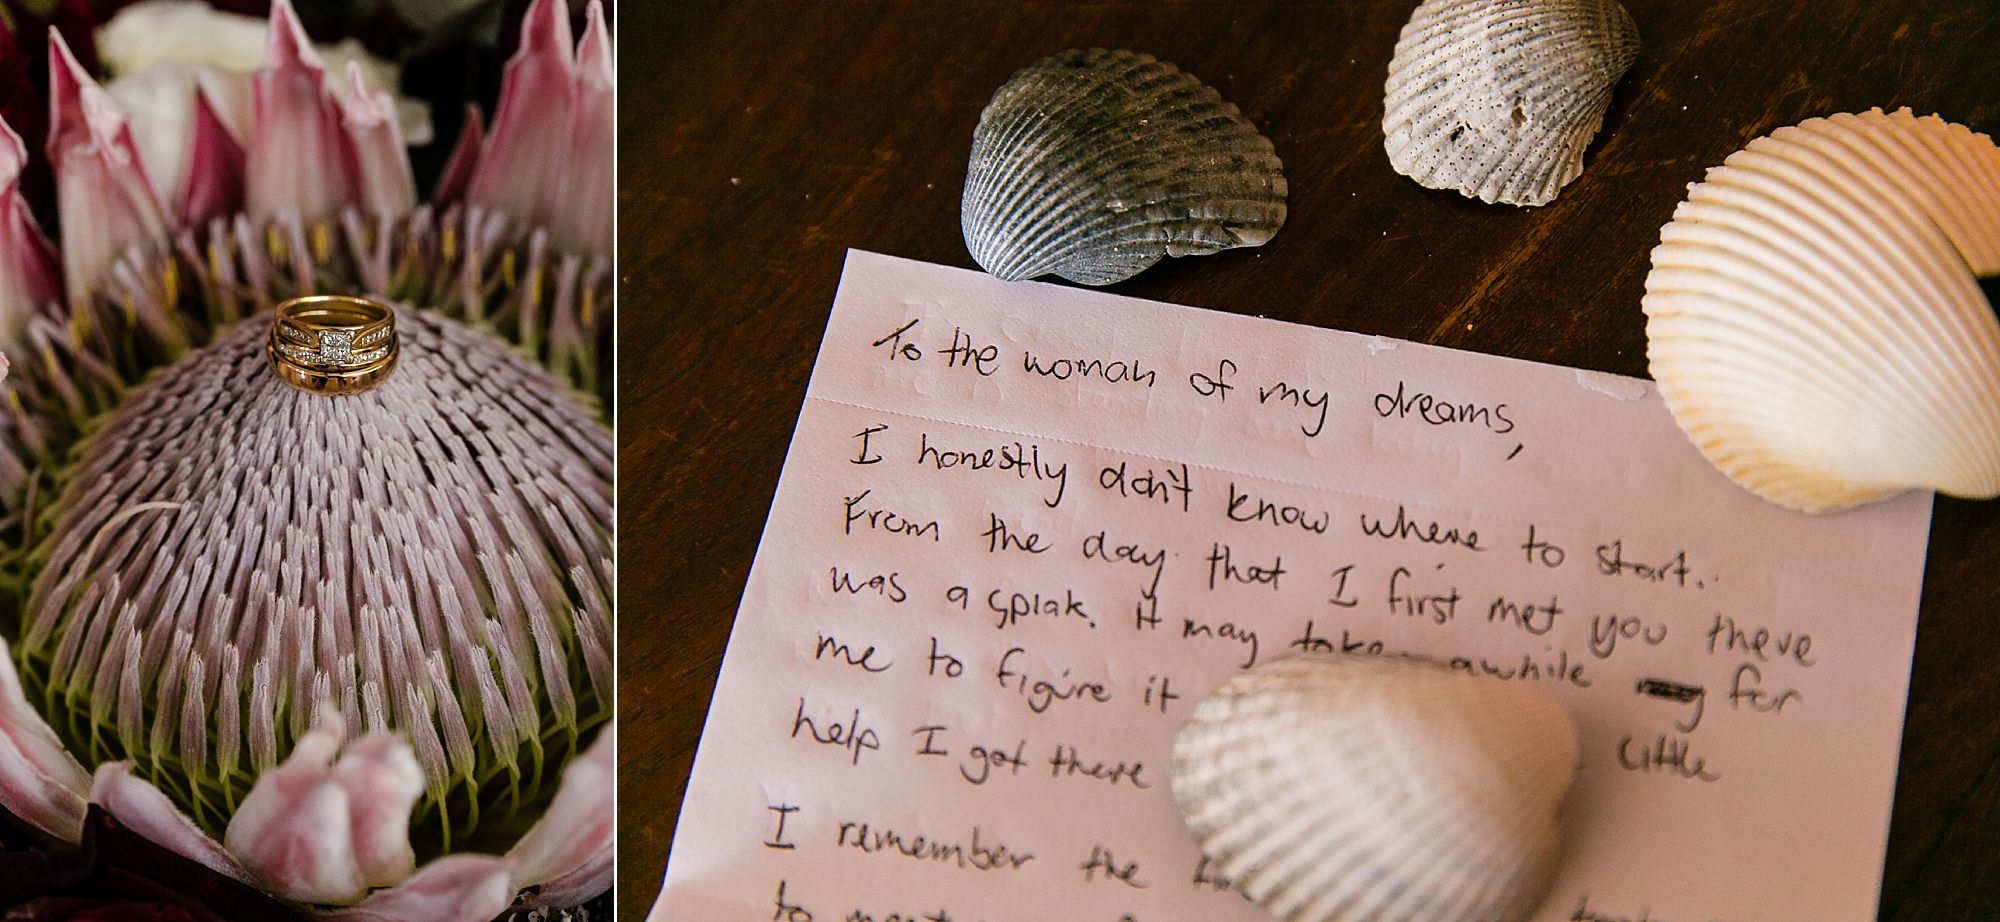 To the woman of my dreams,
I honestly don't know where to start.
From the day that I first met you there
was a sprak. It may take awhile for
me to figure it little
help I got there
I remember the
to